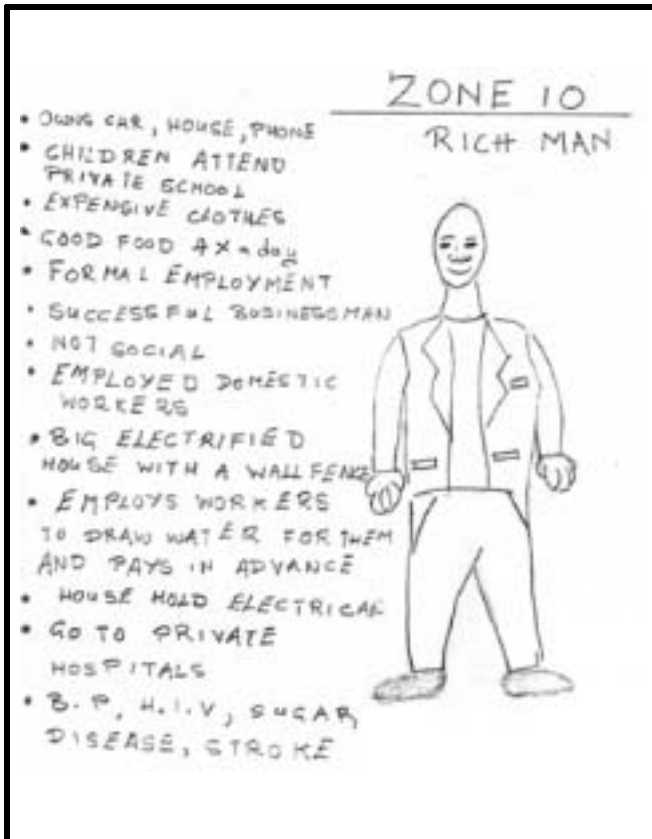 ZONE 10
RICH MAN
• OWNS CAR, HOUSE, PHONE
• CHILDREN ATTEND
PRIVATE SCHOOL
• EXPENSIVE CLOTHES
• GOOD FOOD 4 X a day
• FORMAL EMPLOYMENT
• SUCCESSFUL BUSINESSMAN
• NOT SOCIAL
• EMPLOYED DOMESTIC
WORKERS
• BIG ELECTRIFIED
HOUSE WITH A WALL FENCE
• EMPLOYS WORKERS
TO DRAW WATER FOR THEM
AND PAYS IN ADVANCE
• HOUSE HOLD ELECTRICAL
• GO TO PRIVATE
HOSPITALS
• B.P, H.I.V, SUGAR,
DISEASE, STROKE